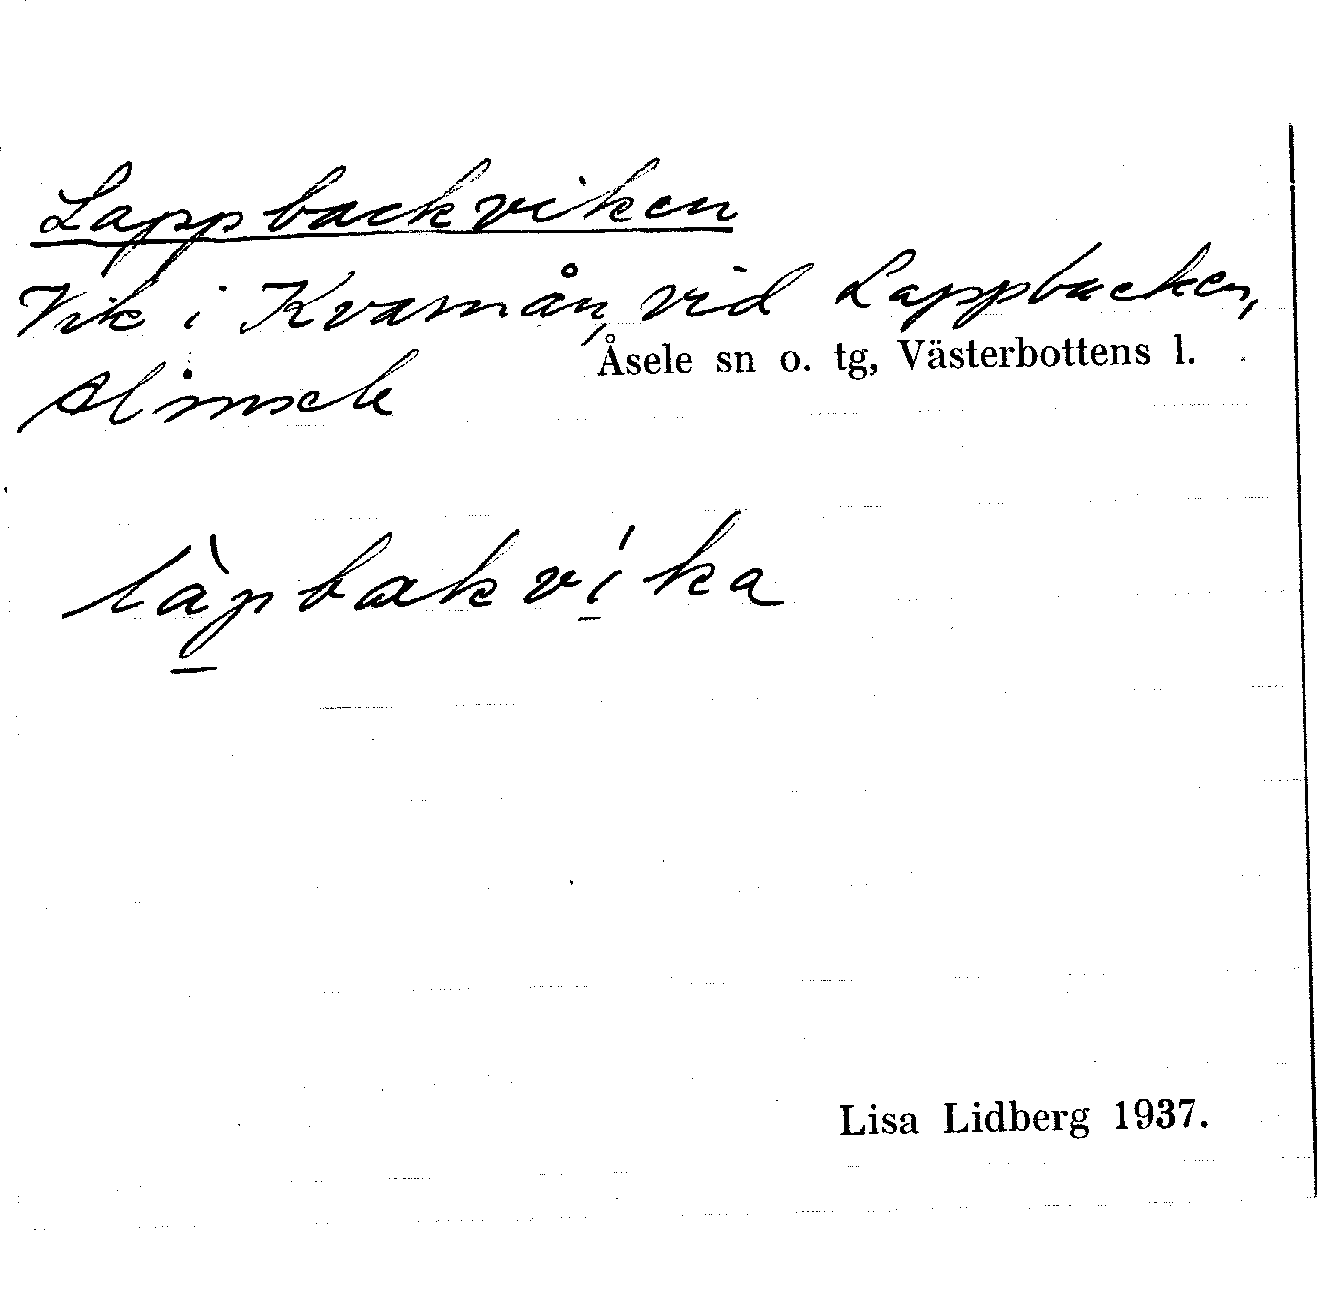 Lappbackviken
Vik i Kvarnån, vid Lappbacken,
Åsele sn o. tg, Västerbottens l.
Almsele
làpbakvíka
Lisa Lidberg 1937.